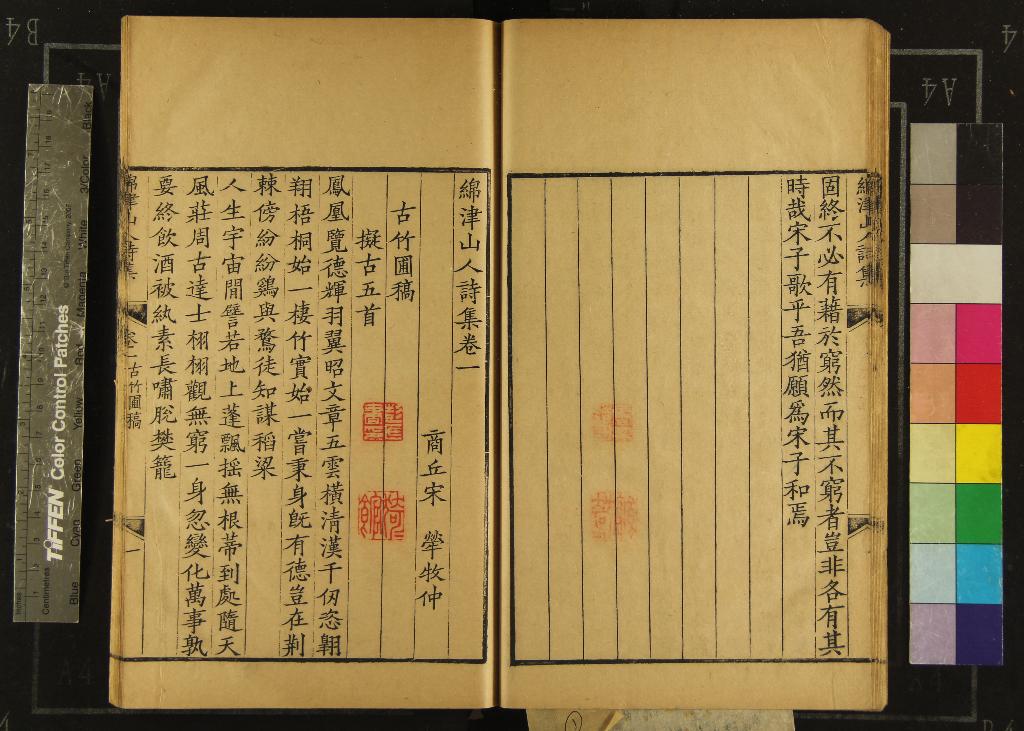 綿津山人詩集
固終不必有藉於窮然而其不窮者豈非各有其
時哉宋子歌乎吾猶願爲宋子和焉
綿津山人詩集卷一
商丘宋 犖牧仲
古竹圃稿
擬古五首
鳳凰覽德輝羽翼昭文章五雲橫清漢千仞恣翱
翔梧桐始一棲竹實始一嘗秉身旣有德豈在荆
棘傍紛紛鷄與鶩徒知謀稻粱
人生宇宙間譬若地上蓬飄揺無根蒂到處隨天
風莊周古達士栩栩觀無窮一身忽變化萬事孰
要終飲酒被紈素長嘯脫樊籠
綿津山人詩集
卷一古竹圃稿
一
TIFFEN Color Control Patches
Blue Cyan Green Yellow Red Magenta White 3/Color Black
Inches
Centimetres
B4
A4
A4
A4
A4